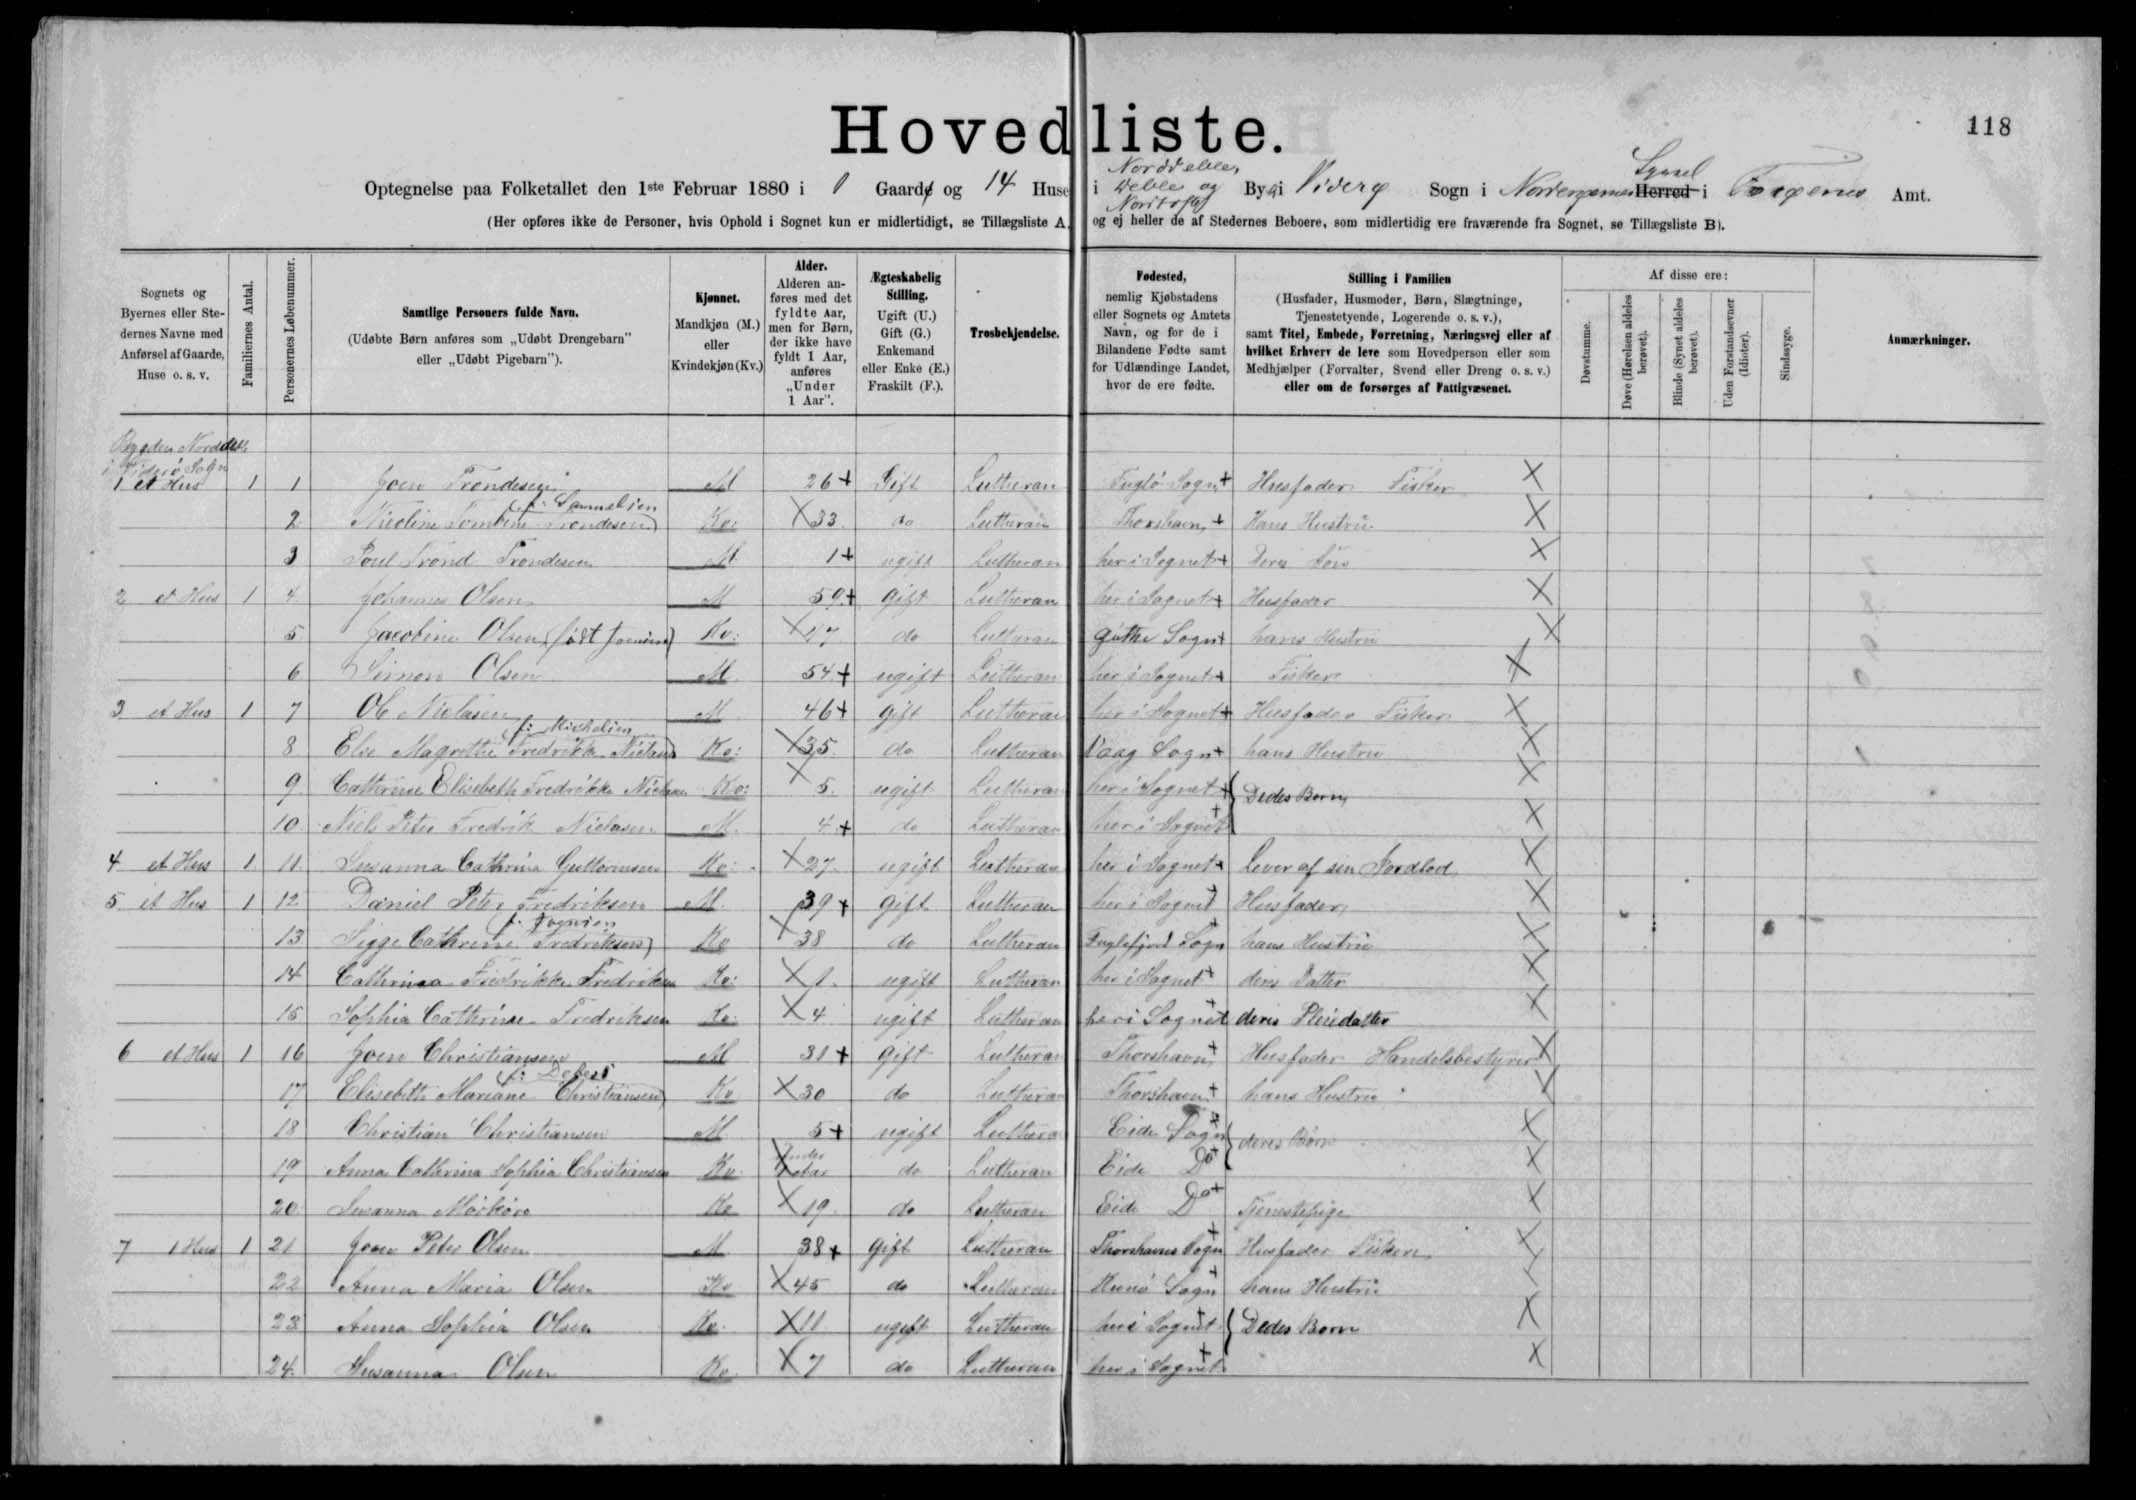 Hovedliste.
118
Optegnelse paa Folketallet den 1ste Februar 1880 i 0 Gaarde og 14 Huse i Norddeble, Deble og By i Viderø Sogn i Norderøernes Herred Syssel i Færøerne Amt.
(Her opføres ikke de Personer, hvis Ophold i Sognet kun er midlertidigt, se Tillægsliste A, og ej heller de af Stedernes Beboere, som midlertidig ere fraværende fra Sognet, se Tillægsliste B).
Sognets og Byernes eller Stedernes Navne med Anførsel af Gaarde, Huse o. s. v.
Familiernes Antal.
Personernes Løbenummer.
Samtlige Personers fulde Navn.
(Udøbte Børn anføres som „Udøbt Drengebarn" eller „Udøbt Pigebarn").
Kjønnet.
Mandkjøn (M.) eller Kvindekjøn (Kv.)
Alder.
Alderen anføres med det fyldte Aar, men for Børn, der ikke have fyldt 1 Aar, anføres „Under 1 Aar".
Ægteskabelig Stilling.
Ugift (U.) Gift (G.) Enkemand eller Enke (E.) Fraskilt (F.).
Trosbekjendelse.
Fødested,
nemlig Kjøbstadens eller Sognets og Amtets Navn, og for de i Bilandene Fødte samt for Udlændinge Landet, hvor de ere fødte.
Stilling i Familien
(Husfader, Husmoder, Børn, Slægtninge, Tjenestetyende, Logerende o. s. v.),
samt Titel, Embede, Forretning, Næringsvej eller af hvilket Erhverv de leve som Hovedperson eller som Medhjælper (Forvalter, Svend eller Dreng o. s. v.) eller om de forsørges af Fattigvæsenet.
Af disse ere:
Døvstumme.
Døve (Hørelsen aldeles berøvet).
Blinde (Synet aldeles berøvet).
Uden Forstandsevner (Idioter).
Sindssyge.
Anmærkninger.
Bygden Norddeble
i Viderö Sogn
1 et Hus 1 1 Joen Trondesen M 26 + Gift Lutheran Fuglö Sogn + Husfader Fisker X
f: Samuelsen
2 Nicoline Trondesen) Kv: X 33 do Lutheran Thorshavn + Hans Hustru X
3 Poul Trond Trondesen M 1 + ugift Lutheran her i Sognet + Deres Sön X
2 et Hus 1 4. Johannes Olsen M 59 + gift Lutheran her i Sognet + Husfader X
5 Jacobine Olsen (født Joensen) Kv: X 47 do Lutheran Göthe Sogn + hans Hustru X
6 Simon Olsen M. 54 + ugift Lutheran her i Sognet + Fisker X
3 et Hus 1 7 Ole Nielasen M 46 + gift Lutheran her i Sognet + Husfader Fisker X
(f: Michelsen
8 Else Magrethe Fredrikke Nielasen) Kv: X 35. do Lutheran Vaag Sogn + hans Hustru X
9. Cathrine Elisebeth Fredrikke Nielasen Kv: X 5. ugift Lutheran her i Sognet + { Dedes Børn X
10. Niels Peter Fredrik Nielasen M. 4. + do Lutheran her i Sognet + X
4 et Hus 1 11. Susanna Cathrina Guttormsen Kv: X 27. ugift Lutheran her i Sognet + Lever af sin Jordlod X
5 et Hus 1 12 Daniel Peter Fredriksen M 39 + gift Lutheran her i Sognet + Husfader X
(f. Joensen
13. Sigge Cathrine Fredriksen) Kv X 38 do Lutheran Fuglefjord Sogn hans Hustru X
14 Cathrina Fredrikke Fredriksen Kv: X 1. ugift Lutheran her i Sognet + deres Datter X
15 Sophia Cathrine Fredriksen Kv: X 4 ugift Lutheran her i Sognet deres Pleiedatter X
6 et Hus 1 16 Joen Christiansen M 31 + gift Lutheran Thorshavn + Husfader Handelsbestyrer X
(f: Debes
17 Elisebeth Mariane Christiansen) Kv X 30 do Lutheran Thorshavn + hans Hustru X
18 Christian Christiansen M 5 + ugift Lutheran Eide Sogn { deres Börn X
19 Anna Cathrina Sophia Christiansen Kv. X under do Lutheran Eide Do + X
20. Susanna Mörköre Kv X 19. do Lutheran Eide Do + Tjenestepige X
7 1 Hus 1 21 Joen Peter Olsen M 38 + gift Lutheran Thorshavns Sogn + Husfader Fisker X
22 Anna Maria Olsen Kv X 45 do Lutheran Kunö Sogn + hans Hustru
23 Anna Sophia Olsen Kv. X 11 ugift Lutheran her i Sognet + { Dedes Børn X
24. Susanna Olsen Kv. X 7 do Lutheran her i Sognet + X